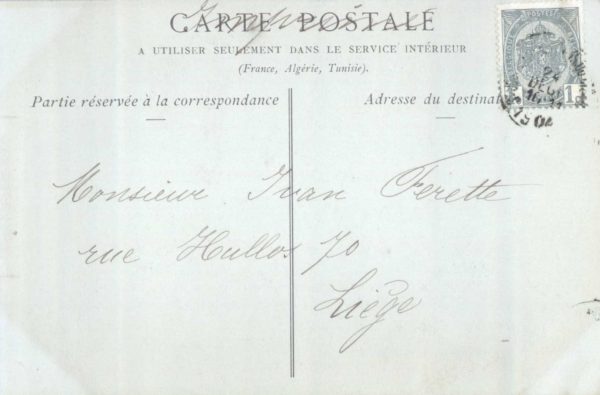 CARTE POSTALE
Imprimé
A UTILISER SEULEMENT DANS LE SERVICE INTÉRIEUR
(France, Algérie, Tunisie).
Partie réservée à la correspondance
Adresse du destinat
1
24
1904
Monsieur Ivan Ferette
rue Hullos 70
Liège